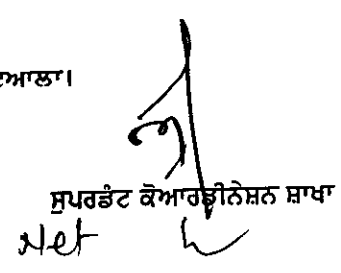 ਆਲਾ।
ਸੁਪਰਡੰਟ ਕੋਆਰਡੀਨੇਸ਼ਨ ਸ਼ਾਖਾ
Net